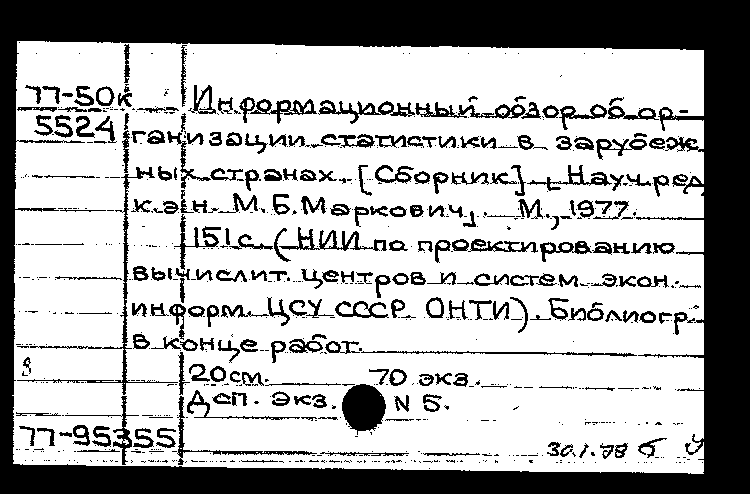 77-50к Информационный обзор об ор-
5524 ганизации статистики в зарубеж
ных странах. [Сборник] [Науч.ред
к.э.н. М.Б.Маркович]. М., 1977.
151с. (НИИ по проектированию
вычислит. центров и систем экон.
информ. ЦСУ СССР ОНТИ). Библиогр.
в конце работ.
20см. 70 экз.
Дсп. Экз. N 5.
77-95355
30.1.78 б